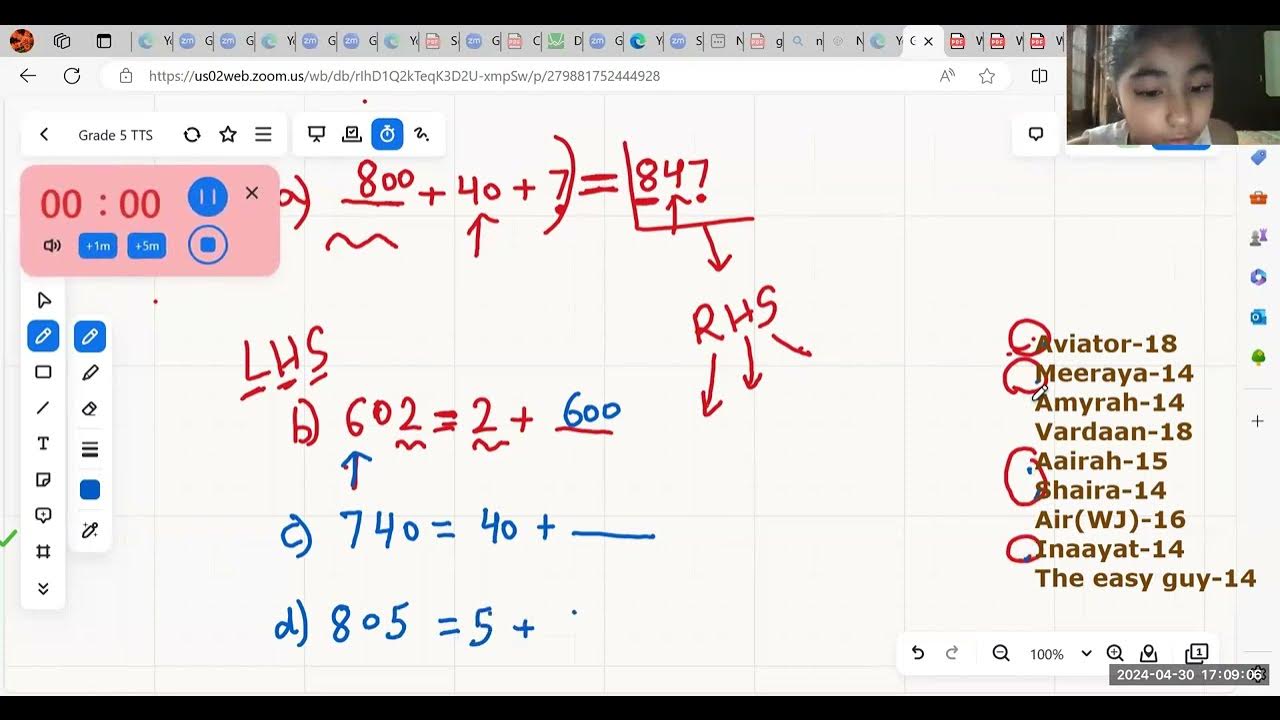 https://us02web.zoom.us/wb/db/rIhD1Q2kTeqK3D2U-xmpSw/p/279881752444928
Grade 5 TTS
00 : 00
+1m
+5m
a) 800 + 40 + 7) = 847
RHS
LHS
b) 602 = 2 + 600
c) 740 = 40 + ____
d) 805 = 5 +
Aviator-18
Meeraya-14
Amyrah-14
Vardaan-18
Aairah-15
Shaira-14
Air(WJ)-16
Inaayat-14
The easy guy-14
100%
2024-04-30 17:09:06